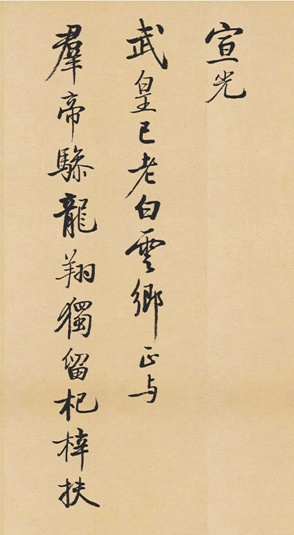 宣光
武皇已老白雲鄉正与
羣帝驂龍翔獨留杞梓扶